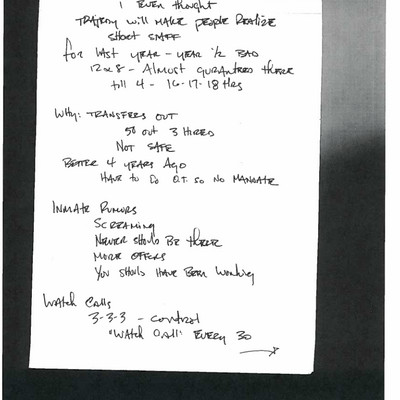 I even thought
TRAgEDy will MAKE people REALIZE
SHORT STAFF
for last year - year ½ BAD
12x8 - Almost guranteed there
till 4 - 16-17-18 Hrs
Why: TRANSFERS OUT
50 out 3 HIRED
Not SAFE
BETTER 4 years Ago
HAVE to Do O.T. so No MANDATE
INMATE RUMORS
SCREAMING
NEVER SHould BE there
MORE OFFERS
You Should HAVE BEEN Working
WAtch CAlls
3-3-3 - control
"WAtch CAll" EVERY 30